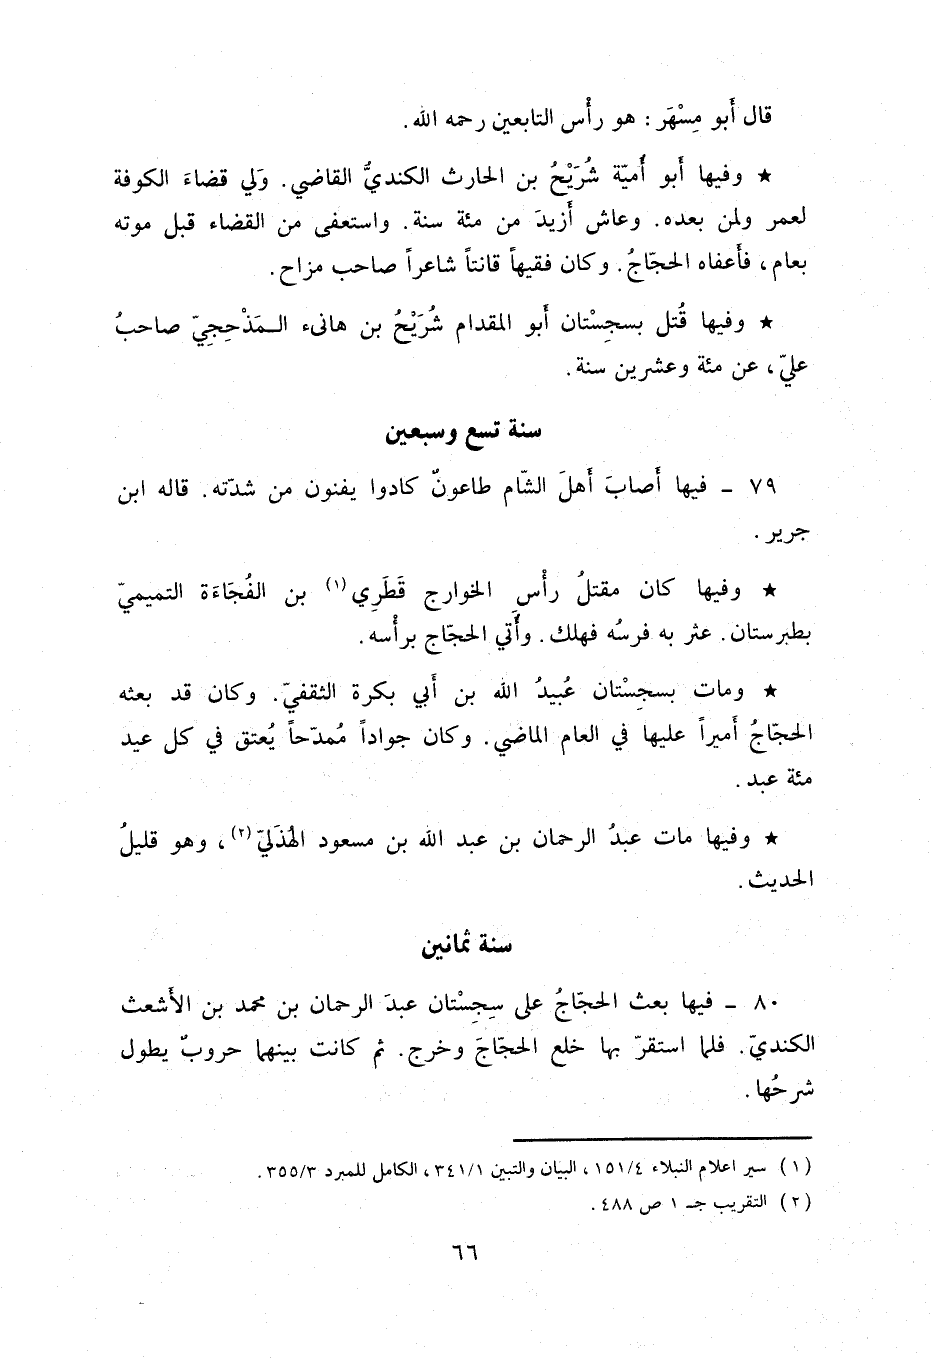 قال أَبو مِسْهَر : هو رأْس التابعين رحمه الله .
★ وفيها أَبو أُميّة شُرَيْحُ بن الحارث الكنديُّ القاضي . وَلي قضاءَ الكوفة
لعمر ولمن بعده . وعاش أَزيدَ من مئة سنة . واستعفى من القضاء قبل موته
بعام ، فأَعفاه الحجّاجُ . وكان فقيهاً قانتاً شاعراً صاحب مزاح .
★ وفيها قُتل بسجِسْتان أَبو المقدام شُرَيْحُ بن هانىء الـمَذْحِجِيّ صاحبُ
عليّ ، عن مئة وعشرين سنة .
سنة تسع وسبعين
٧٩ ـ فيها أَصابَ أَهلَ الشّام طاعونٌ كادوا يفنون من شدّته . قاله ابن
جرير .
★ وفيها كان مقتلُ رأْسِ الخوارج قَطَرِي (١) بن الفُجَاءَة التميميّ
بطبرستان . عثر به فرسُه فهلك . وأُتي الحجّاج برأْسه .
★ ومات بسجِسْتان عُبيدُ الله بن أَبي بكرة الثقفيّ . وكان قد بعثه
الحجّاجُ أَميراً عليها في العام الماضي . وكان جواداً مُمدّحاً يُعتق في كل عيد
مئة عبد .
★ وفيها مات عبدُ الرحمان بن عبد الله بن مسعود الهُذَليّ (٢) ، وهو قليلُ
الحديث .
سنة ثمانين
٨٠ ـ فيها بعث الحجّاجُ على سِجِسْتان عبدَ الرحمان بن محمد بن الأَشعث
الكنديّ . فلما استقرّ بها خلع الحجّاجَ وخرج . ثم كانت بينهما حروبٌ يطول
شرحُها .
(١) سير اعلام النبلاء ١٥١/٤ ، البيان والتبين ٣٤١/١ ، الكامل للمبرد ٣٥٥/٣ .
(٢) التقريب جـ ١ ص ٤٨٨ .
٦٦